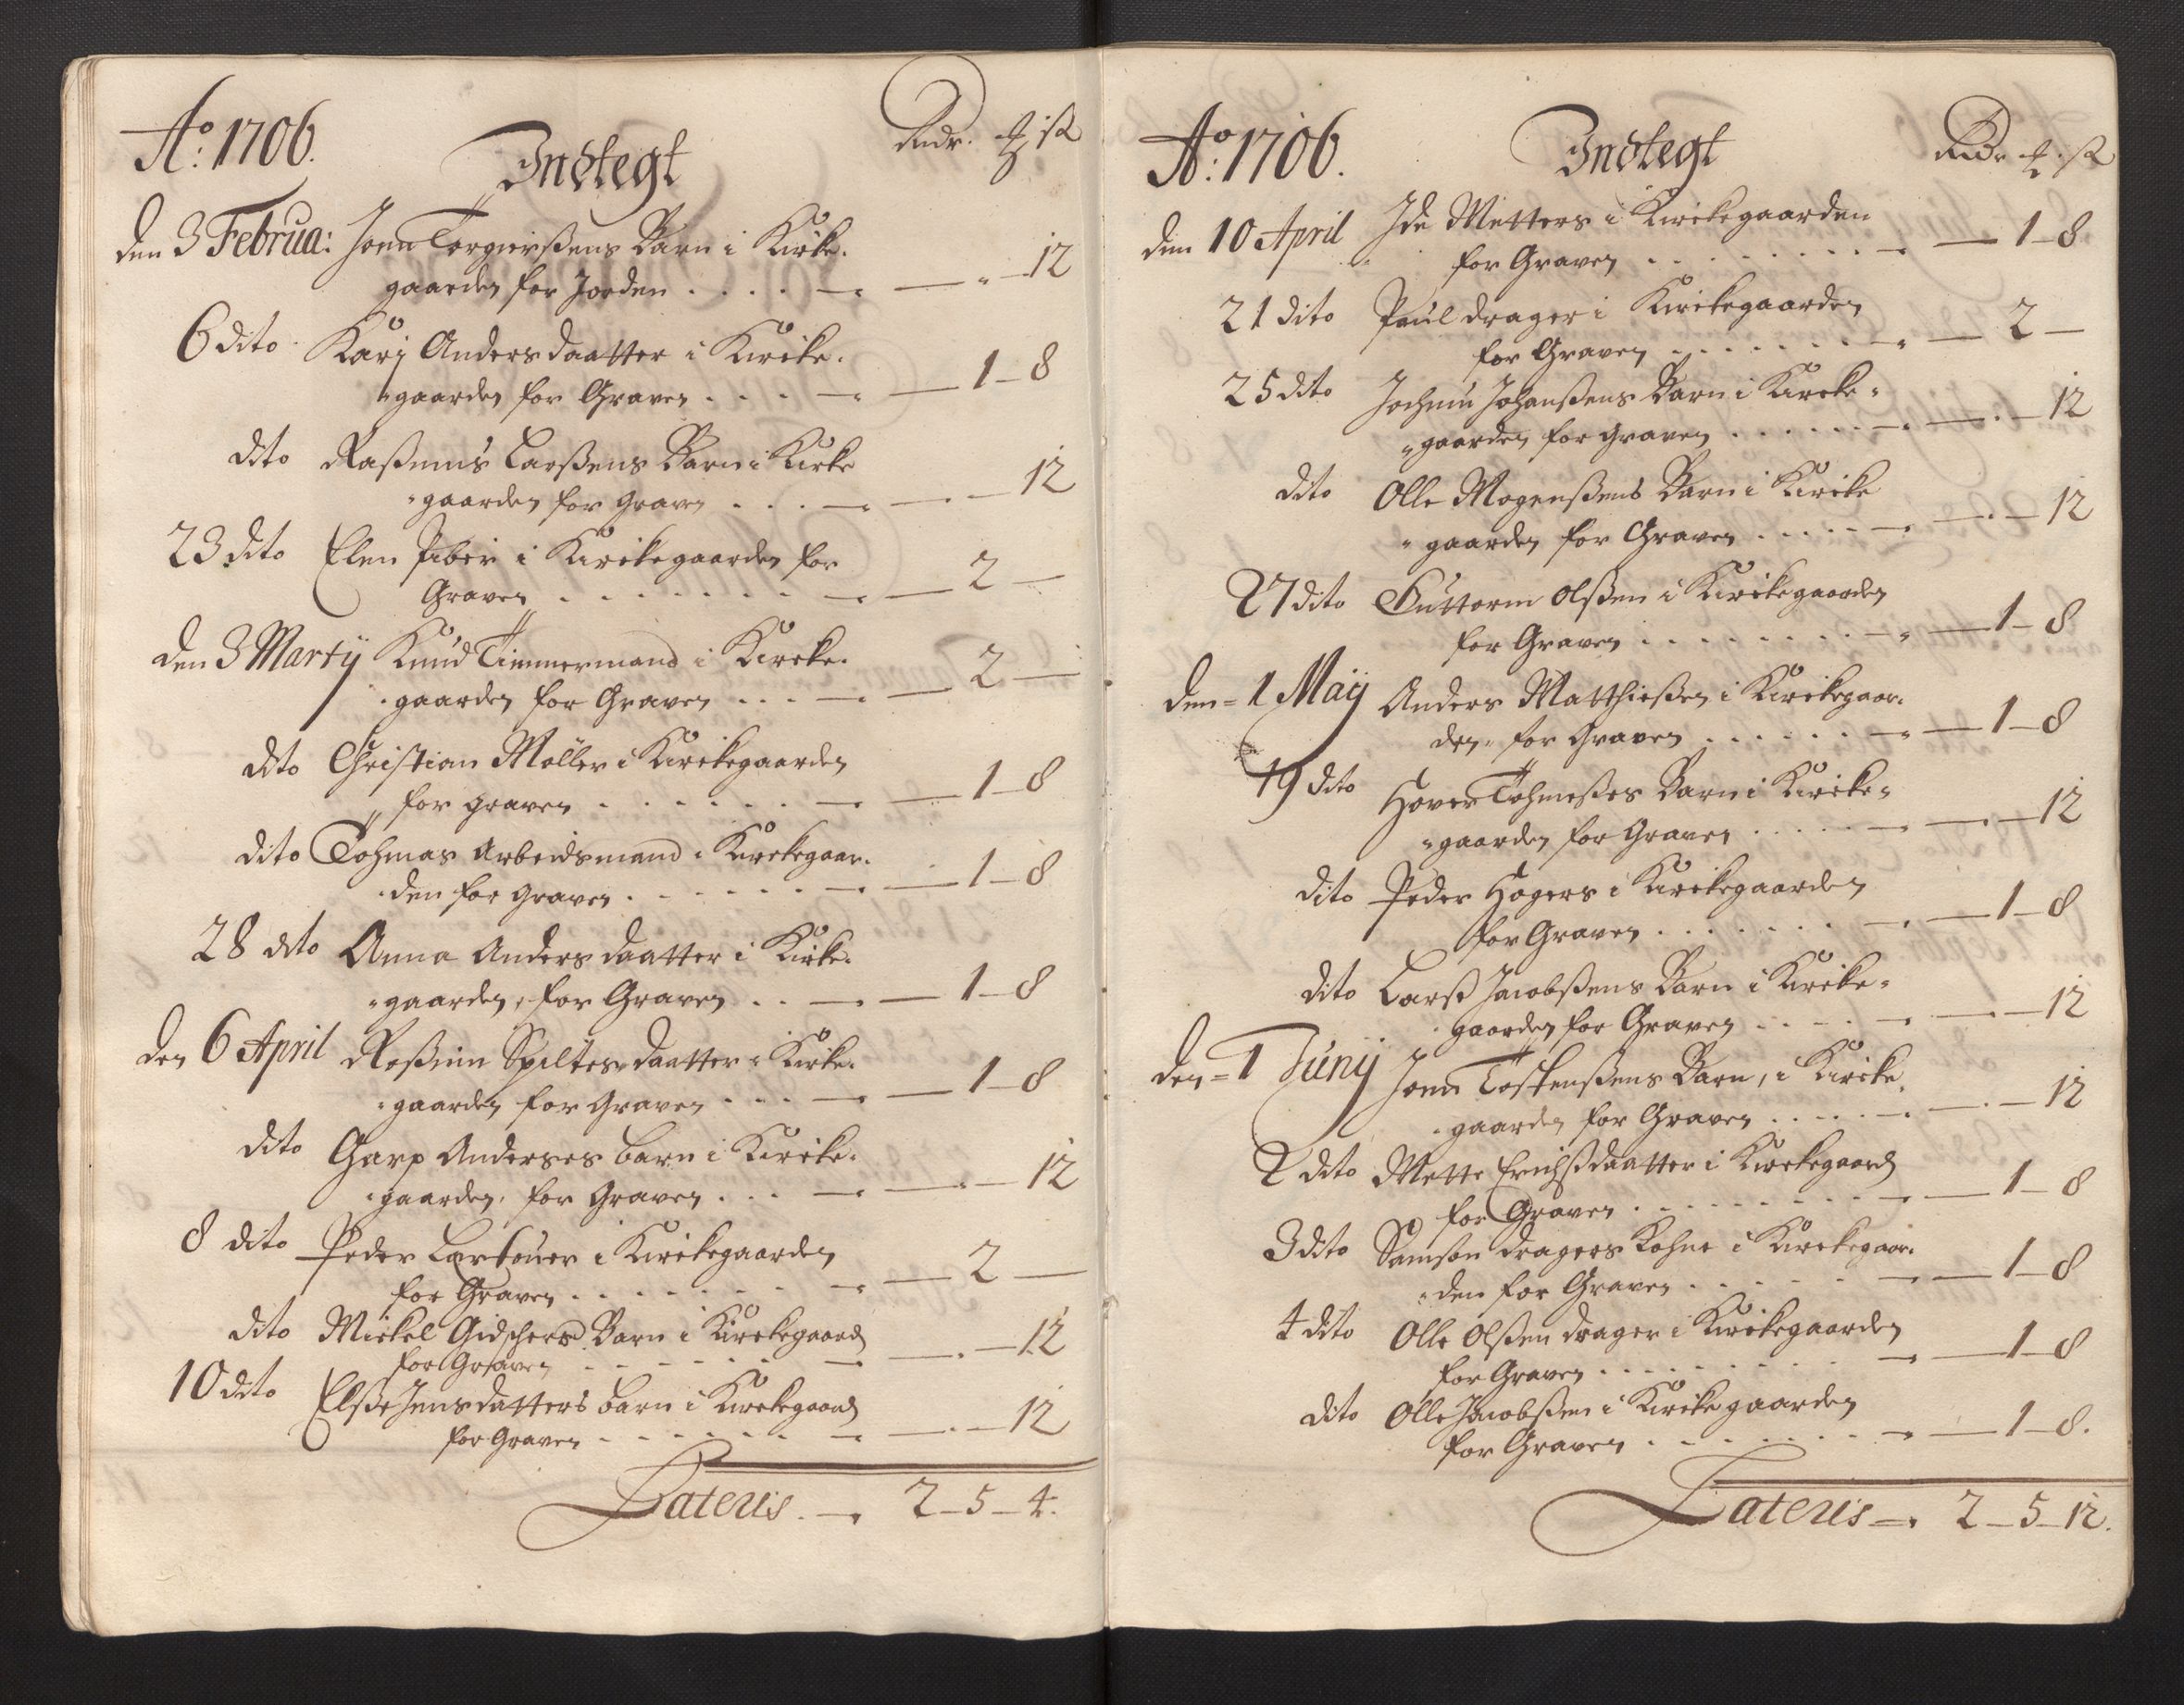 Ao: 1706.
Indtegt
Rdr. ℔ ß
den 3 Februa: Joen Torgierßens Barn i Kirke-
gaarden for Jorden . . . . — — " — 12
6 dito Karj Anders daatter i Kircke-
gaarden for Graven . . . — — 1 — 8
dito Raßmus Larßens Barn i Kirke
gaarden for Graven . . . — — 12
23 dito Elen Piber i Kirckegaarden for
Graven . . . . . . . — — 2 —
den 3 Martij Knud Timmermand i Kircke-
gaarden for Graven . . . — — 2 —
dito Christian Møller i Kirckegaarden
for graven . . . . . . — — 1 — 8
dito Tohmas Arbeidsmand i Kirckegaar-
den for graven . . . . . . — — 1 — 8
28 dito Anna Anders daatter i Kirke-
gaarden, for Graven . . — — 1 — 8
den 6 April Roßiin Spiltes daatter i Kirke-
gaarden for Graven . . . — — 1 — 8
dito Garp Anderses barn i Kircke-
gaarden, for Graven . . . — — 12
8 dito Peder i Kirckegaarden
for Graven . . . . . . . — 2 —
dito Mickel Gidschers Barn i Kirckegaard
for Graven . . . . . . — — 12
10 dito Elße Jensdatters barn i Kirckegaard
for Graven . . . . . . — — 12
Lateris. — 2 — 5 — 4.
Ao: 1706.
Indtegt
Rdr ℔ ß
den 10 April Ide Metters i Kirckegaarden
for Graven . . . . . . . . — — 1 — 8
21 dito Paul drager i Kirckegaarden
for Graven . . . . . . . — 2 —
25 dito Jochum Johanßens Barn i Kircke-
gaarden for graven . . . . . . — — 12
dito Olle Mogenßens Barn i Kircke
gaarden for Graven . . . . . — — 12
27 dito Guttorm Olßen i Kirckegaarden
for Graven . . . . . . . . — — 1 — 8
den 1 Maij Anders Matthießen i Kirckegaar-
den for Graven . . . . . . — — 1 — 8
19 dito Hover Tohmeßes Barn i Kircke-
gaarden for Graven . . . . . — — 12
dito Peder Høgers i Kirckegaarden
for Graven . . . . . . . — — 1 — 8
dito Larß Jacobßens Barn i Kircke-
gaarden for Graven . . . . — — 12
den 1 Junij Joen Tostenßens Barn, i Kircke
gaarden for Graven . . . . . — — 12
2 dito Mette Erichßdaatter i Kirckegaard
for Graven . . . . . . . . — — 1 — 8
3 dito Samson dragers Kohne i Kirckegaar-
den for Graven . . . . . . — — 1 — 8
4 dito Olle Olßen drager i Kirckegaarden
for Graven . . . . . . . — — 1 — 8
dito Olle Jacobßen i Kirckegaarden
for Graven . . . . . . . — — 1 — 8.
Lateris — 2 — 5 — 12.